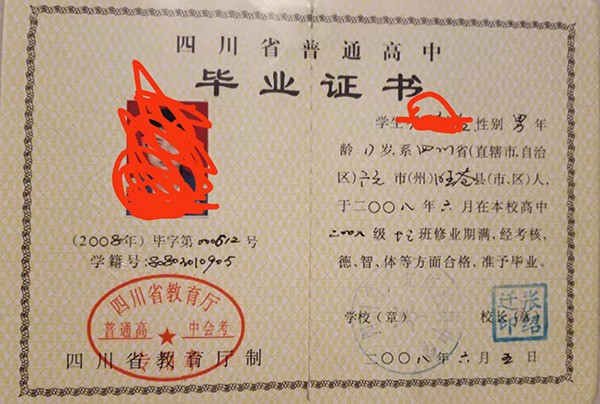 四川省普通高中
毕业证书
学生
性别 男 年
龄 17 岁,系四川省(直辖市、自治
区)广元市(州)旺苍县(市、区)人,
于二〇〇八年六月在本校高中
二〇〇八级 班修业期满,经考核,
德、智、体等方面合格,准予毕业。
(2008年)毕字第000512号
学籍号:80803010905
四川省教育厅
普通高 中会考
专用章
四川省教育厅制
学校(章)
校长(章)
张绍
迁印
二〇〇八年六月五日